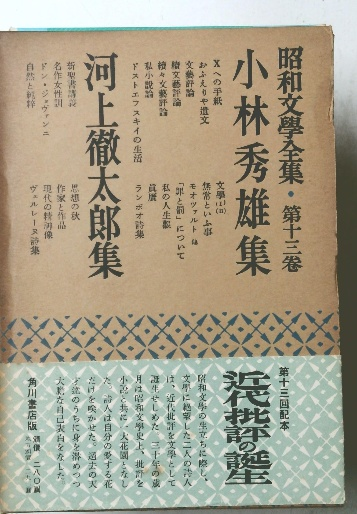 昭和文學全集・第十三卷
小林秀雄集
Xへの手紙
おふえりや遺文
文藝評論
續文藝評論
續々文藝評論
私小說論
ドストエフスキイの生活
文學㈠㈡
無常といふ事
モオツァルト 他
「罪と罰」について
私の人生觀
眞贋
ランボオ詩集
河上徹太郎集
新聖書講義
名作女性訓
ドン・ジョヴァンニ
自然と純粹
思想の秋
作家と作品
現代の精神像
ヴェルレーヌ詩集
第十三回配本
近代批評の誕生
昭和文學の生立ちに際し、
文學に絶望した二人の詩人
は、近代批評を文學として
誕生せしめた。三十年の歲
月は昭和文學史上、批評を
小說と共に二大花園となし
た。詩人は自分の愛する花
だけを咲かせた。過去の天
才達のうちに身を潛めつつ
大膽な自己表白をなした。
角川書店版